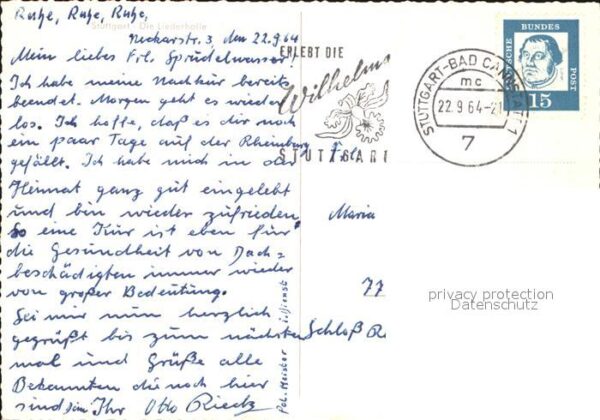 Ruhe, Ruhe, Ruhe,
Stuttgart Die Liederhalle
Neckarstr. 3, den 22.9.64
Mein liebes Frl. Sprudelwasser!
Ich habe meine Nachkur bereits
beendet. Morgen geht es wieder
los. Ich hoffe, daß es dir noch
ein paar Tage auf der Rheinburg
gefällt. Ich habe mich in der
Heimat ganz gut eingelebt
und bin wieder zufrieden.
So eine Kur ist eben für
die Gesundheit von Dach=
beschädigten immer wieder
von großer Bedeutung.
Sei nun herzlich
gegrüßt bis zum nächsten
mal und Grüße alle
Bekannten die noch hier
sind Ihr Otto
ERLEBT DIE
Wilhelma
STUTTGART
STUTTGART-BAD CANNSTATT 1
mc
22.9.64-21
7
DEUTSCHE BUNDESPOST
15
Frl.
Maria
77
Schloß R
privacy protection
Datenschutz